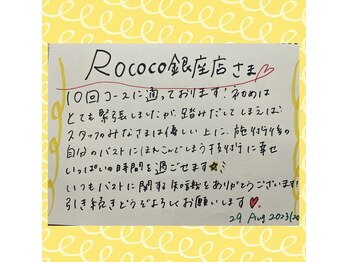 Rococo銀座店さま♡
10回コースに通っております！初めは
とても緊張しましたが、踏みだしてしまえば
スタッフのみなさまは優しい上に、施術後の
自分のバストにほれこんでしまう施術に幸せ
いっぱいの時間を過ごせます★
いつもバストに関する知識をありがとうございます！
引き続きどうぞよろしくお願いします♥
29 Aug 2023